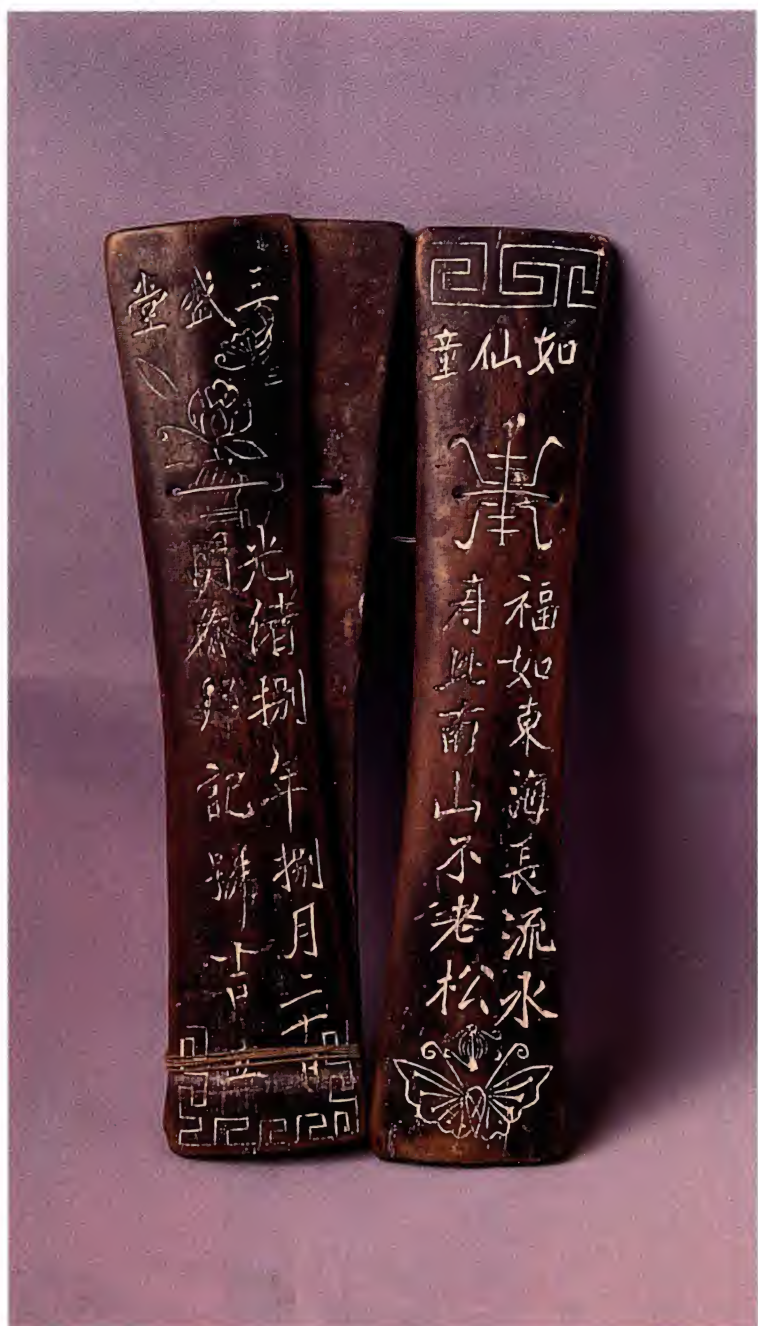 如仙童
福如東海長流水
寿比南山不老松
三盛堂
光绪捌年捌月二十
明春記號吉立